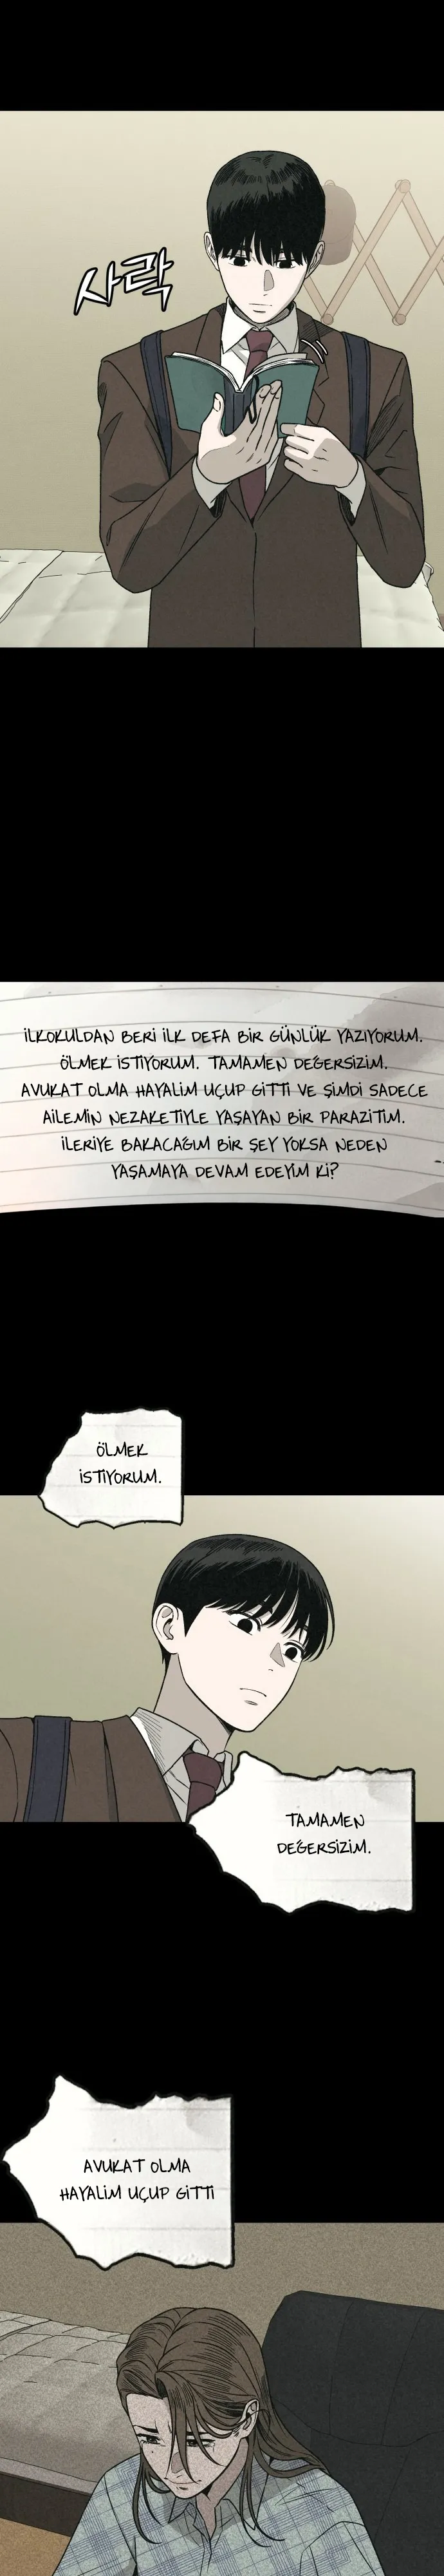 사락
İLKOKULDAN BERİ İLK DEFA BİR GÜNLÜK YAZIYORUM.
ÖLMEK İSTİYORUM. TAMAMEN DEĞERSİZİM.
AVUKAT OLMA HAYALİM UÇUP GİTTİ VE ŞİMDİ SADECE
AİLEMİN NEZAKETİYLE YAŞAYAN BİR PARAZİTİM.
İLERİYE BAKACAĞIM BİR ŞEY YOKSA NEDEN
YAŞAMAYA DEVAM EDEYİM Kİ?
ÖLMEK
İSTİYORUM.
TAMAMEN
DEĞERSİZİM.
AVUKAT OLMA
HAYALİM UÇUP GİTTİ